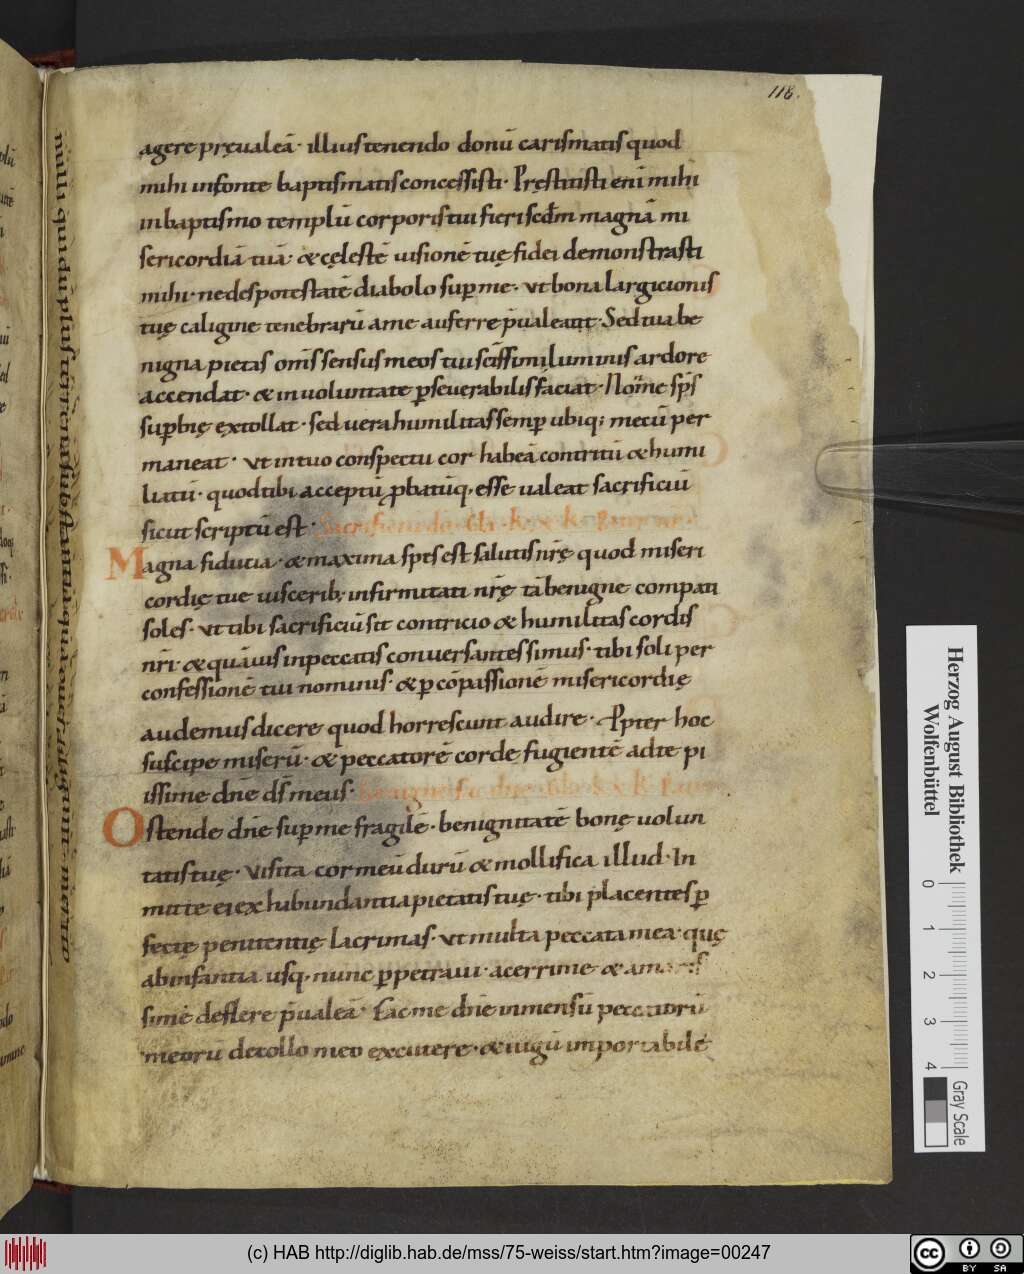 118.
agere pręualeā · illius tenendo donū carismatis quod
mihi in fonte baptismatis concessisti · Pręstitisti enī mihi
in baptismo templū corporis tui fieri scd̄m magnā mi
sericordiā tuā · & cęlestē uisionē tuę fidei demonstrasti
mihi · ne des potestatē diabolo sup me · vt bona largicionis
tuę caligine tenebrarū a me auferre p̄ualeant · Sed tua be
nigna pietas om̄s sensus meos tui sc̄issimi luminis ardore
accendat · & in uoluntate p̱seuerabilis faciat · Non me sp̄s
sup̱bię extollat · sed uera humilitas semp̱ ubiq; mecū per
maneat · vt in tuo conspectu cor habeā contritū & humi
liatū · quod tibi acceptū p̱batūq, esse ualeat sacrificiū
sicut scriptū est ·
Magna fiducia · & maxima spes est salutis nr̄ę quod miseri
cordię tue uiscerib; infirmitati nr̄ę tā benigne compati
soles · vt tibi sacrificiū sit contricio & humilitas cordis
nr̄i · & quāuis in peccatis conuersantes simus · tibi soli per
confessionē tui nominis · & p̱ cōpassionē misericordię
audemus dicere quod horrescunt audire · Ppter hoc
suscipe miserū · & peccatorē corde fugientē ad te pi
issime dn̄e ds̄ meus ·
Ostende dn̄e sup me fragilē · benignitatē bonę uolun
tatis tuę · Visita cor meū durū & mollifica illud · In
mitte ei ex habundantia pietatis tuę · tibi placentes p̱
fectę penitentię lacrimas · vt multa peccata mea · quę
ab infantia usq, nunc p̱petraui · acerrime & amaris
sime deflere p̄ualeā · Fac me dn̄e inmensū peccatorū
meorū de collo meo excutere · & iugū importabilē
Herzog August Bibliothek
Wolfenbüttel
0 1 2 3 4
Gray Scale
(c) HAB http://diglib.hab.de/mss/75-weiss/start.htm?image=00247
cc BY SA